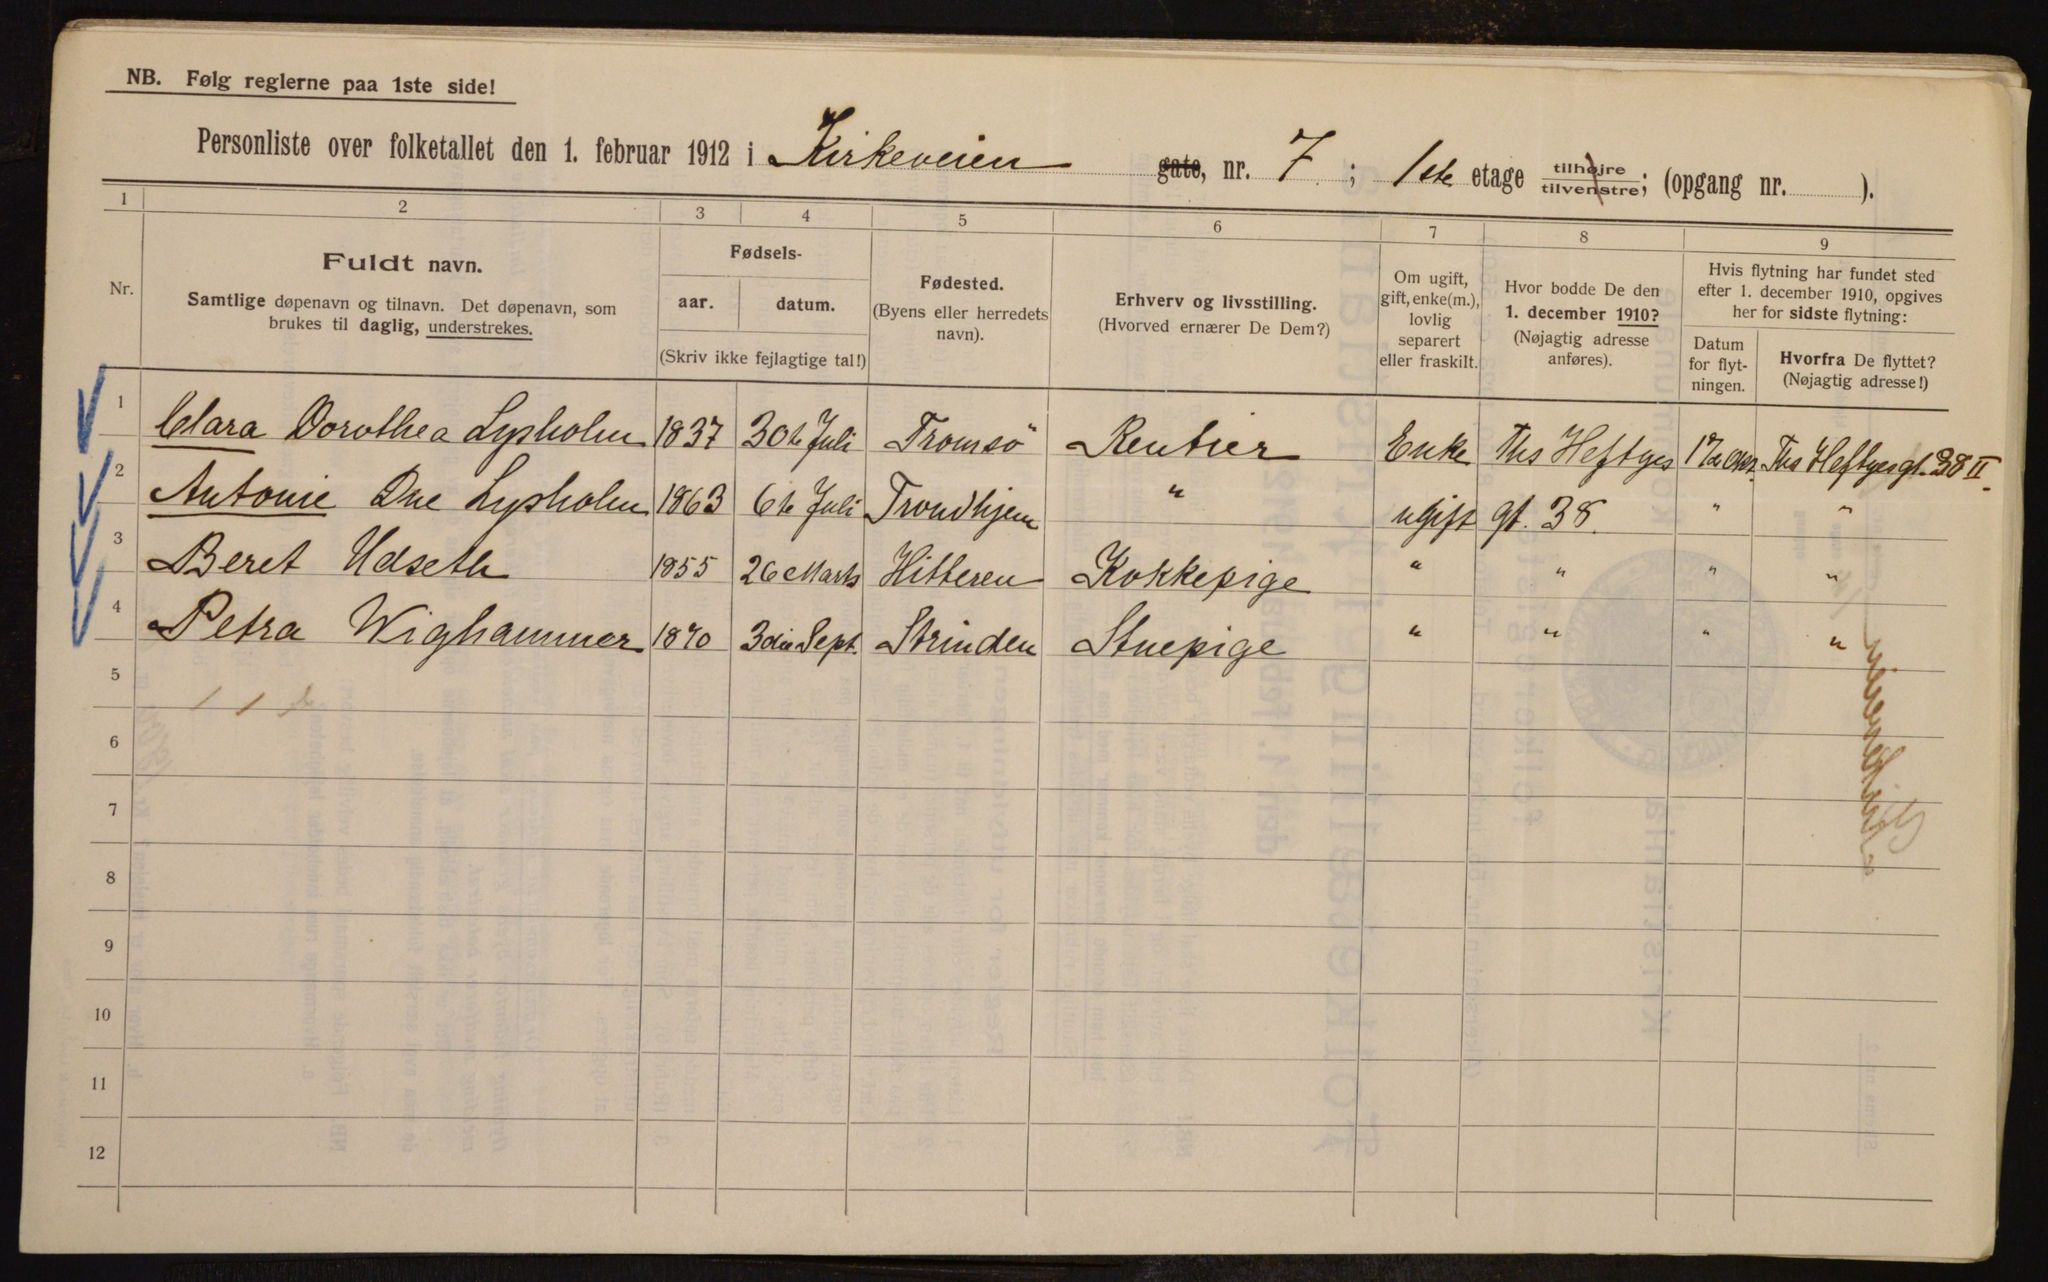 NB. Følg reglerne paa 1ste side!
Personliste over folketallet den 1. februar 1912 i Kirkeveien gate, nr. 7 ; 1ste etage tilhøjre tilvenstre; (opgang nr. ).
1 2 3 4 5 6 7 8 9
Nr.
Fuldt navn.
Samtlige døpenavn og tilnavn. Det døpenavn, som
brukes til daglig, understrekes.
Fødsels-
aar. datum.
(Skriv ikke fejlagtige tal!)
Fødested.
(Byens eller herredets
navn).
Erhverv og livsstilling.
(Hvorved ernærer De Dem?)
Om ugift,
gift, enke(m.),
lovlig
separert
eller fraskilt.
Hvor bodde De den
1. december 1910?
(Nøjagtig adresse
anføres).
Hvis flytning har fundet sted
efter 1. december 1910, opgives
her for sidste flytning:
Datum
for flyt-
ningen.
Hvorfra De flyttet?
(Nøjagtig adresse!)
1 Clara Dorothea Lysholm 1837 30te Juli Tromsö Rentier Enke Ths Heftyes Ths Heftyes gt. 38 II.
2 Antonie Lysholm 1863 6te Juli Trondhjem " ugift gt. 38. " "
3 Beret Udseth 1855 26 Marts Hitteren Kokkepige " " " "
4 Petra Wighammer 1870 3die Sept. Strinden Stuepige " " " "
5
6
7
8
9
10
11
12